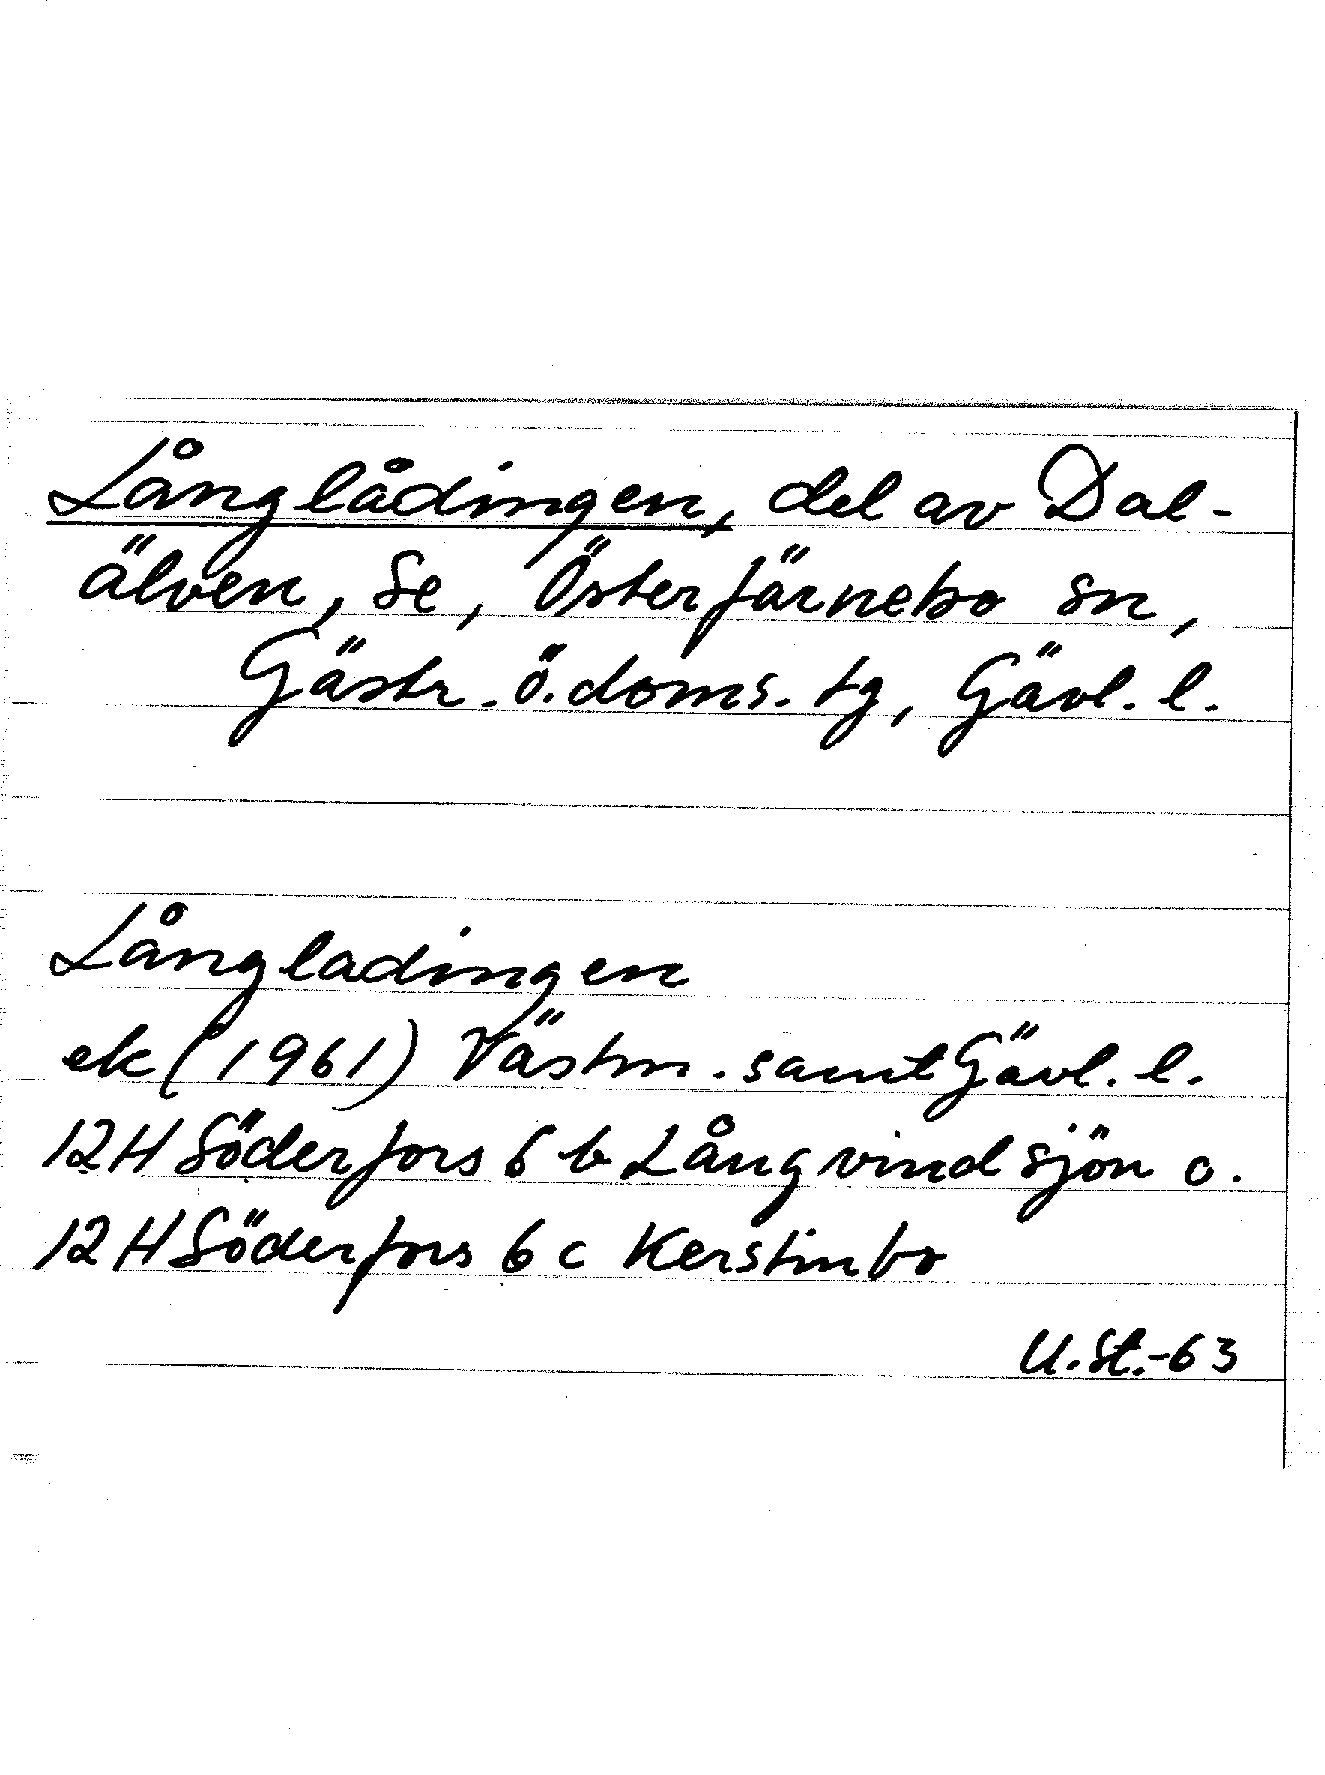 Långlådingen, del av Dal-
älven, Se, Österfärnebo sn,
Gästr. ö. doms. tg, Gävl. l.
Långladingen
ek (1961) Västm. samt Gävl. l.
12H Söderfors 6 b Långvindsjön o.
12H Söderfors 6 c Kerstinbo
U.St.-63